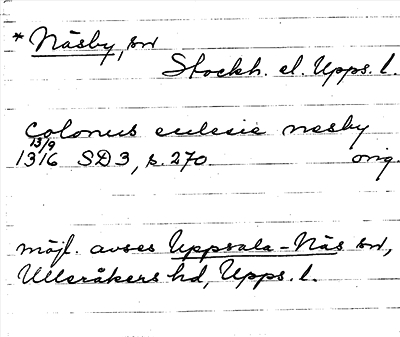 * Näsby, sn
Stockh. el. Upps. l.
Colonus eclesie nesby
13/9
1316 SD 3, s. 270 orig.
möjl. avses Uppsala-Näs sn,
Ulleråkers hd, Upps. l.